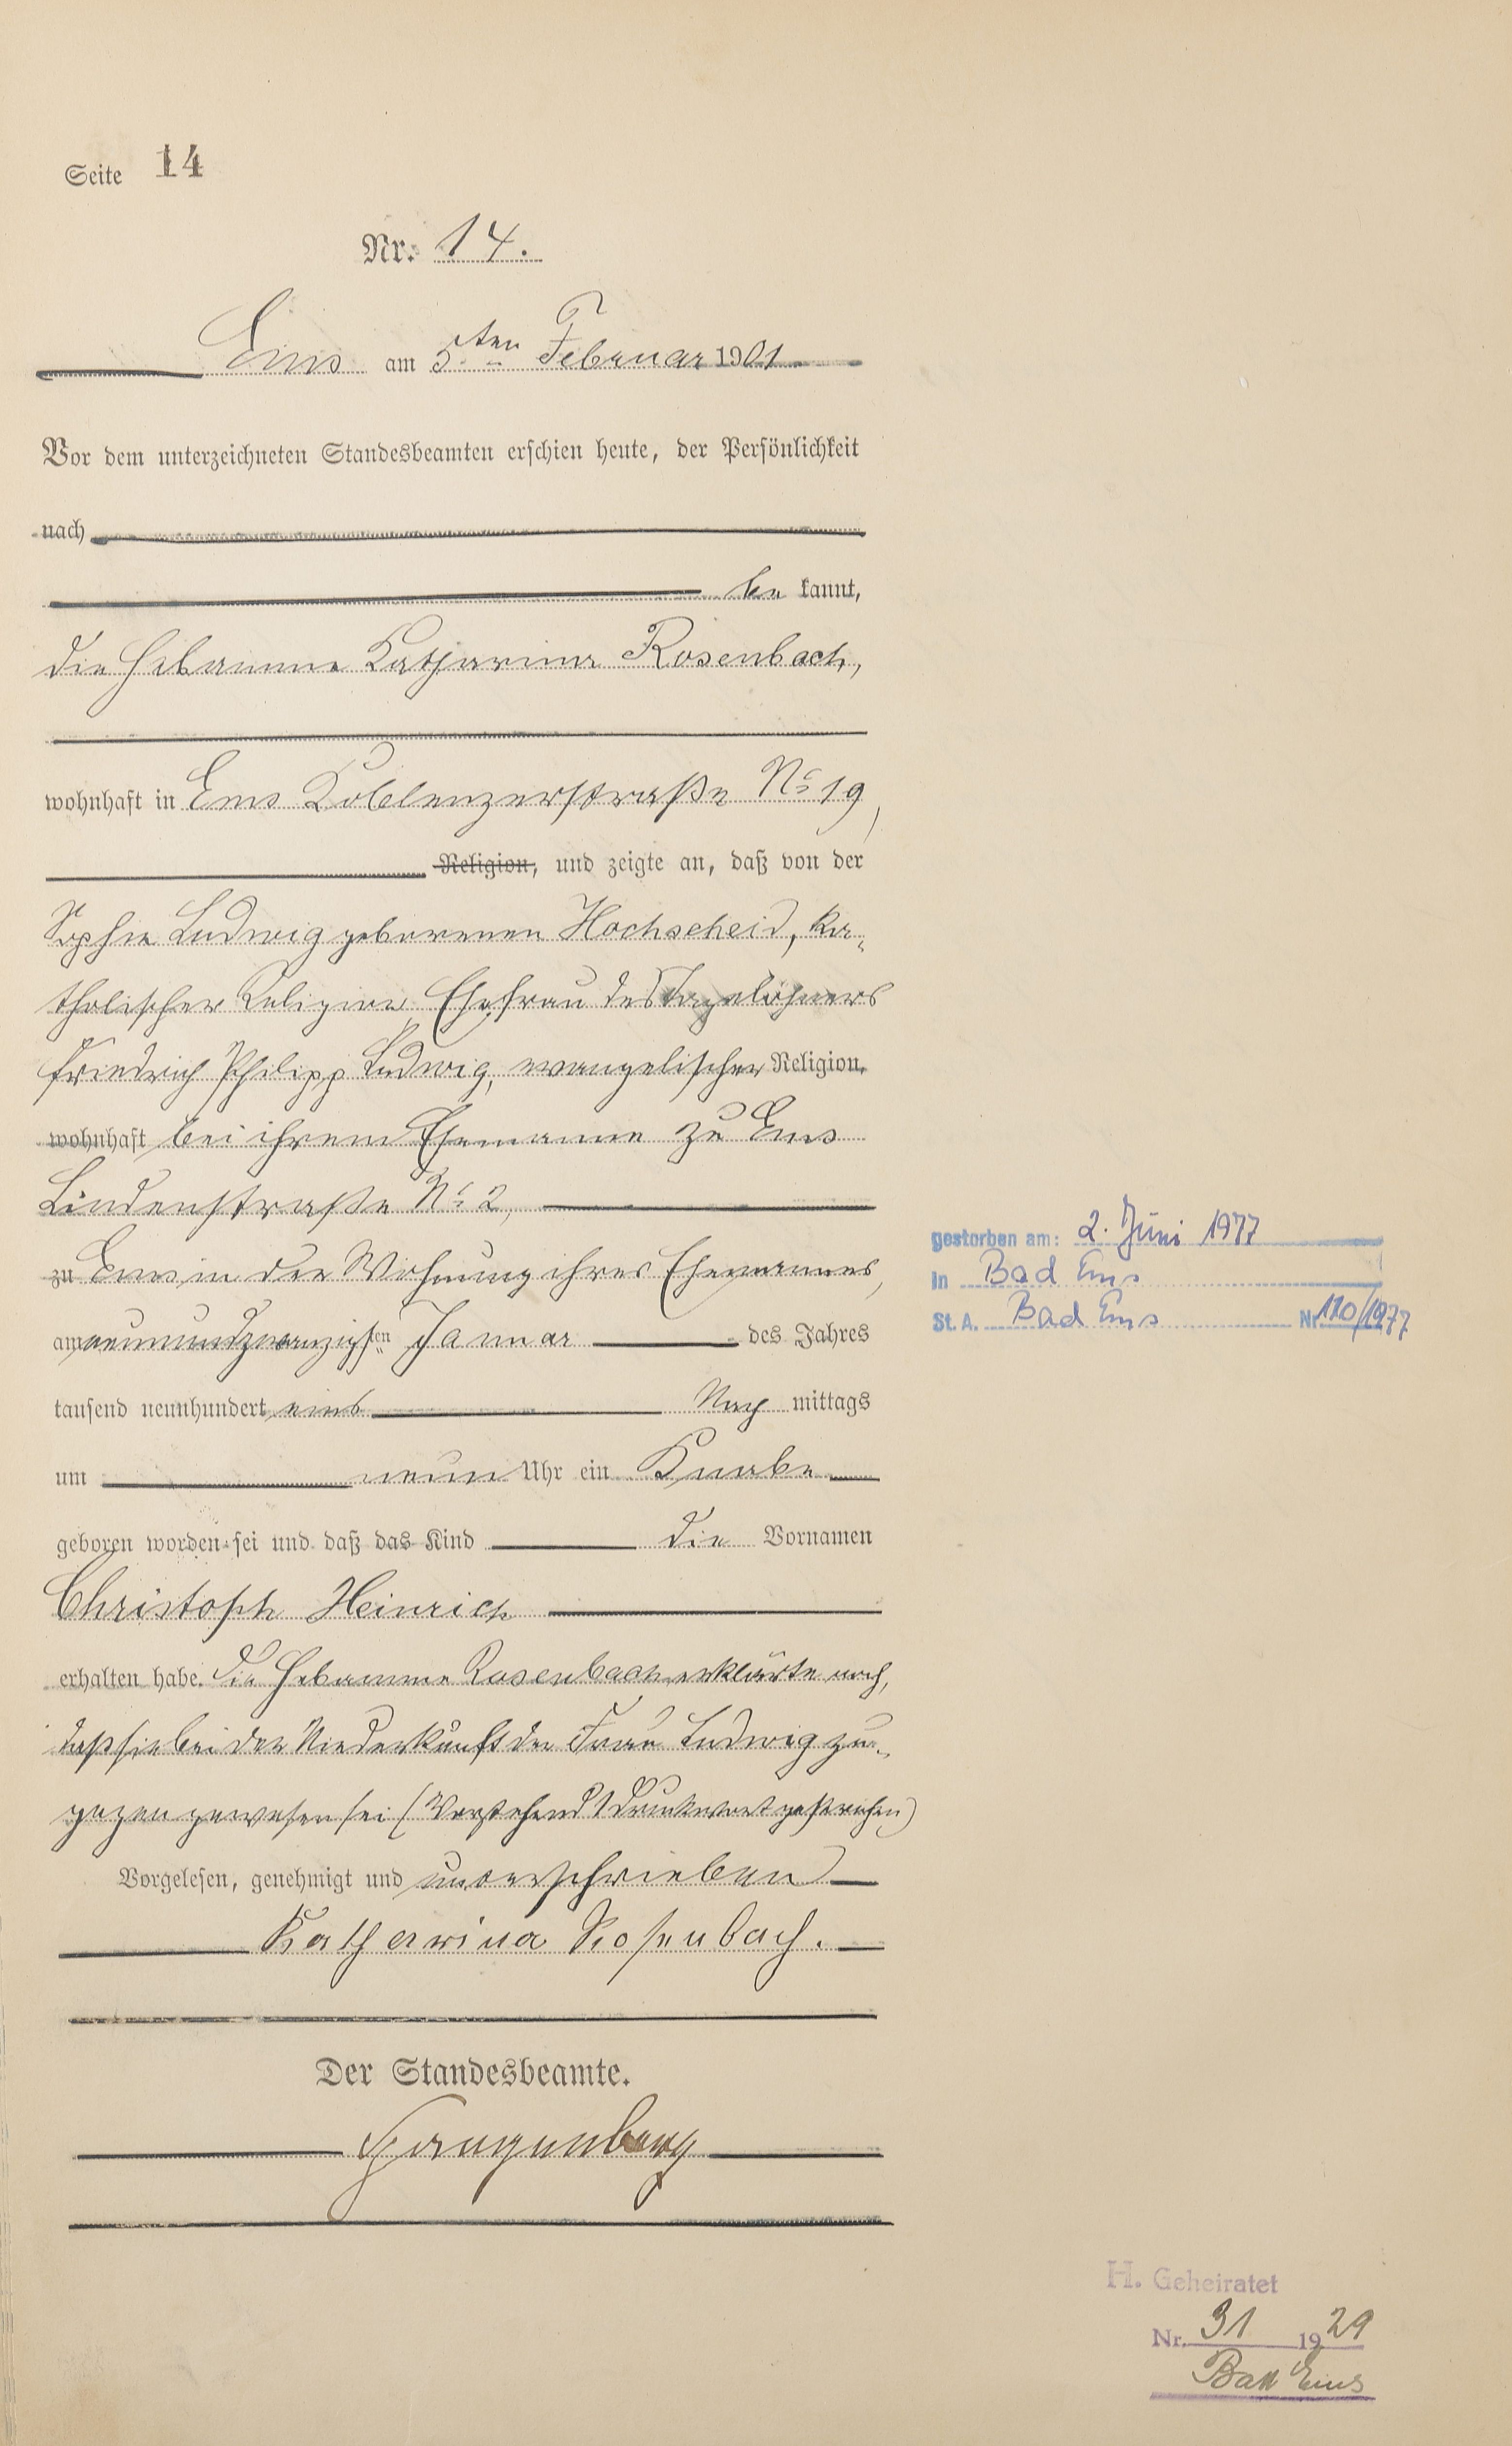 Seite 14
Nr. 14.
Ems am 5ten Februar 1901
Vor dem unterzeichneten Standesbeamten erschien heute, der Persönlichkeit
nach
be kannt,
die Hebamme Katharina Rosenbach,
wohnhaft in Ems Koblenzerstraße No 19,
Religion, und zeigte an, daß von der
Sophie Ludwig geborenen Hochscheid, ka-
tholischer Religion, Ehefrau des Tagelöhners
Friedrich Philipp Ludwig, evangelischer Religion,
wohnhaft bei ihrem Ehemanne zu Ems
Lindenstraße No 2,
zu Ems in der Wohnung ihres Ehemannes,
am neunundzwanzigsten Januar des Jahres
tausend neunhundert eins Nach mittags
um neun Uhr ein Knabe
geboren worden sei und daß das Kind die Vornamen
Christoph Heinrich
erhalten habe. Die Hebamme Rosenbach erklärte noch,
daß sie bei der Niederkunft der Frau Ludwig zu-
gegen gewesen sei (Vorstehend 1 Druckwort gestrichen)
Vorgelesen, genehmigt und unterschrieben
Katharina Rosenbach.
Der Standesbeamte.
gestorben am: 2. Juni 1977
in Bad Ems
St. A. Bad Ems Nr 110/1977
H. Geheiratet
Nr. 31 1929
Bad Ems